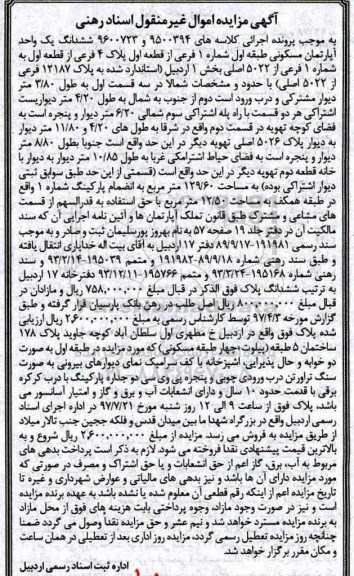 آگهی مزایده اموال غیرمنقول اسناد رهنی
به موجب پرونده اجرائی کلاسه های ۹۵۰۰۳۹۴ و ۹۶۰۰۷۲۳ ششدانگ یک واحد
آپارتمان مسکونی طبقه اول شماره ۱ فرعی از قطعه اول پلاک ۴ فرعی از قطعه اول به
شماره ۱ فرعی از ۵۰۲۲ اصلی بخش ۱ اردبیل (استاندارد شده به پلاک ۱۲۱۸۷ فرعی
از ۵۰۲۲ اصلی) با حدود و مشخصات شمالا در سه قسمت اول به طول ۳/۸۰ متر
دیوار مشترکی و درب ورود است دوم از جنوب به شمال به طول ۴/۲۰ متر دیواریست
اشتراکی هر دو قسمت با راه پله اشتراکی سوم شمالی ۶/۲۰ متر دیوار و پنجره است به
فضای کوچه تهویه در قسمت دوم واقع در شرقا به طول های ۴/۲۰ و ۱۱/۸۰ متر دیوار
به دیوار پلاک ۵۰۲۶ اصلی تهویه دیگر در این حد واقع است جنوبا بطول ۸/۸۰ متر
دیوار و پنجره است به فضای حیاط اشتراکی غربا به طول ۱۰/۸۵ متر دیوار به دیوار با
خانه قطعه دوم تهویه دیگر در این حد واقع است (قسمتی از این حد طبق سوابق ثبتی
دیوار اشتراکی بوده) به مساحت ۱۲۹/۶۰ متر مربع به انضمام پارکینگ شماره ۱ واقع
در طبقه همکف به مساحت ۱۲/۵۰ متر مربع با حق استفاده به قدرالسهم از قسمت
های مشاعی و مشترک طبق قانون تملک آپارتمان ها و آئین نامه اجرایی آن که سند
مالکیت آن در دفتر جلد ۱۹ صفحه ۵۷ به نام بهروز پورسلیمان ثبت و صادر و به موجب
سند رسمی ۱۹۱۹۸۱-۸۹/۹/۱۷ دفتر ۱۷ اردبیل به آقای بیت اله خدایاری انتقال یافته
و طبق سند رهنی شماره ۱۹۱۹۸۲-۸۹/۹/۱۸ و متمم ۱۹۵۰۳۹-۹۳/۲/۱۴ و سند
رهنی شماره ۱۹۵۱۶۸-۹۳/۳/۲۴ و متمم ۱۹۵۷۶۶-۹۳/۱۲/۱۱ دفترخانه ۱۷ اردبیل
به ترتیب ششدانگ پلاک فوق الذکر در قبال مبلغ ۷۵۸,۰۰۰,۰۰۰ ریال و مازادان در
قبال مبلغ ۸۰۰,۰۰۰,۰۰۰ ریال اصل طلب در رهن بانک پارسیان قرار گرفته و طبق
گزارش مورخه ۹۷/۴/۳ توسط کارشناس رسمی به مبلغ ۲,۶۰۰,۰۰۰,۰۰۰ ریال ارزیابی
شده پلاک فوق واقع در اردبیل خ مطهری اول سلطان آباد کوچه جاوید پلاک ۱۷۸
ساختمان ۵ طبقه (پیلوت+چهار طبقه مسکونی) که مورد مزایده در طبقه اول به صورت
دو خوابه و حال پذیرایی، آشپزخانه با کف سرامیک نمای دیوارهای بیرونی به صورت
سنگ تراورتن درب ورودی چوبی و پنجره پی وی سی دو جداره پارکینگ با درب کرکره
برقی با قدمت حدود ۱۰ سال و دارای انشعابات آب و برق و گاز و امتیاز آسانسور می
باشد، پلاک فوق از ساعت ۹ الی ۱۲ روز شنبه مورخ ۹۷/۷/۲۱ در اداره اجرای اسناد
رسمی اردبیل واقع در بزرگراه شهدا ما بین میدان قدس و فلکه ججین جنب تالار میلاد
از طریق مزایده به فروش می رسد. مزایده از مبلغ ۲,۶۰۰,۰۰۰,۰۰۰ ریال شروع و به
بالاترین قیمت پیشنهادی نقدا فروخته می شود. لازم به ذکر است پرداخت بدهی های
مربوط به آب، برق، گاز اعم از حق انشعابات و یا حق اشتراک و مصرف در صورتی که
مورد مزایده دارای آن ها باشد و نیز بدهی های مالیاتی و عوارض شهرداری و غیره تا
تاریخ مزایده اعم از اینکه رقم قطعی آن معلوم شده یا نشده باشد به عهده برنده مزایده
است و نیز در صورت وجود مازاد، وجوه پرداختی بابت هزینه های فوق از محل مازاد
به برنده مزایده مسترد خواهد شد و نیم عشر و حق مزایده نقدا وصول می گردد ضمنا
چنانچه روز مزایده تعطیل رسمی گردد، مزایده روز اداری بعد از تعطیلی در همان ساعت
و مکان مقرر برگزار خواهد شد.
اداره ثبت اسناد رسمی اردبیل